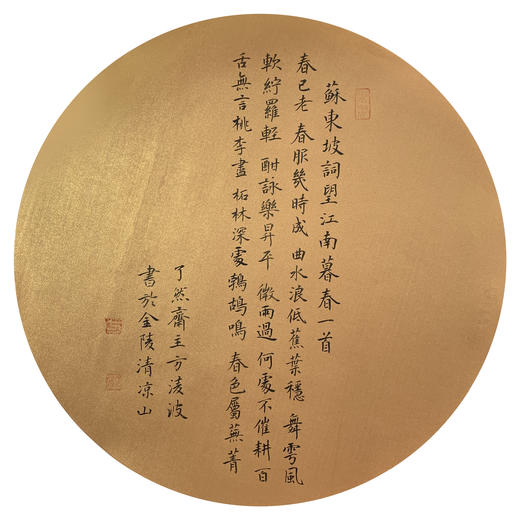 蘇東坡詞望江南暮春一首
春已老 春服幾時成 曲水浪低蕉葉穩 舞雩風
軟紵羅輕 酣詠樂昇平 微雨過 何處不催耕 百
舌無言桃李盡 柘林深處鵓鴣鳴 春色屬蕪菁
了然齋主方淩波
書於金陵清凉山